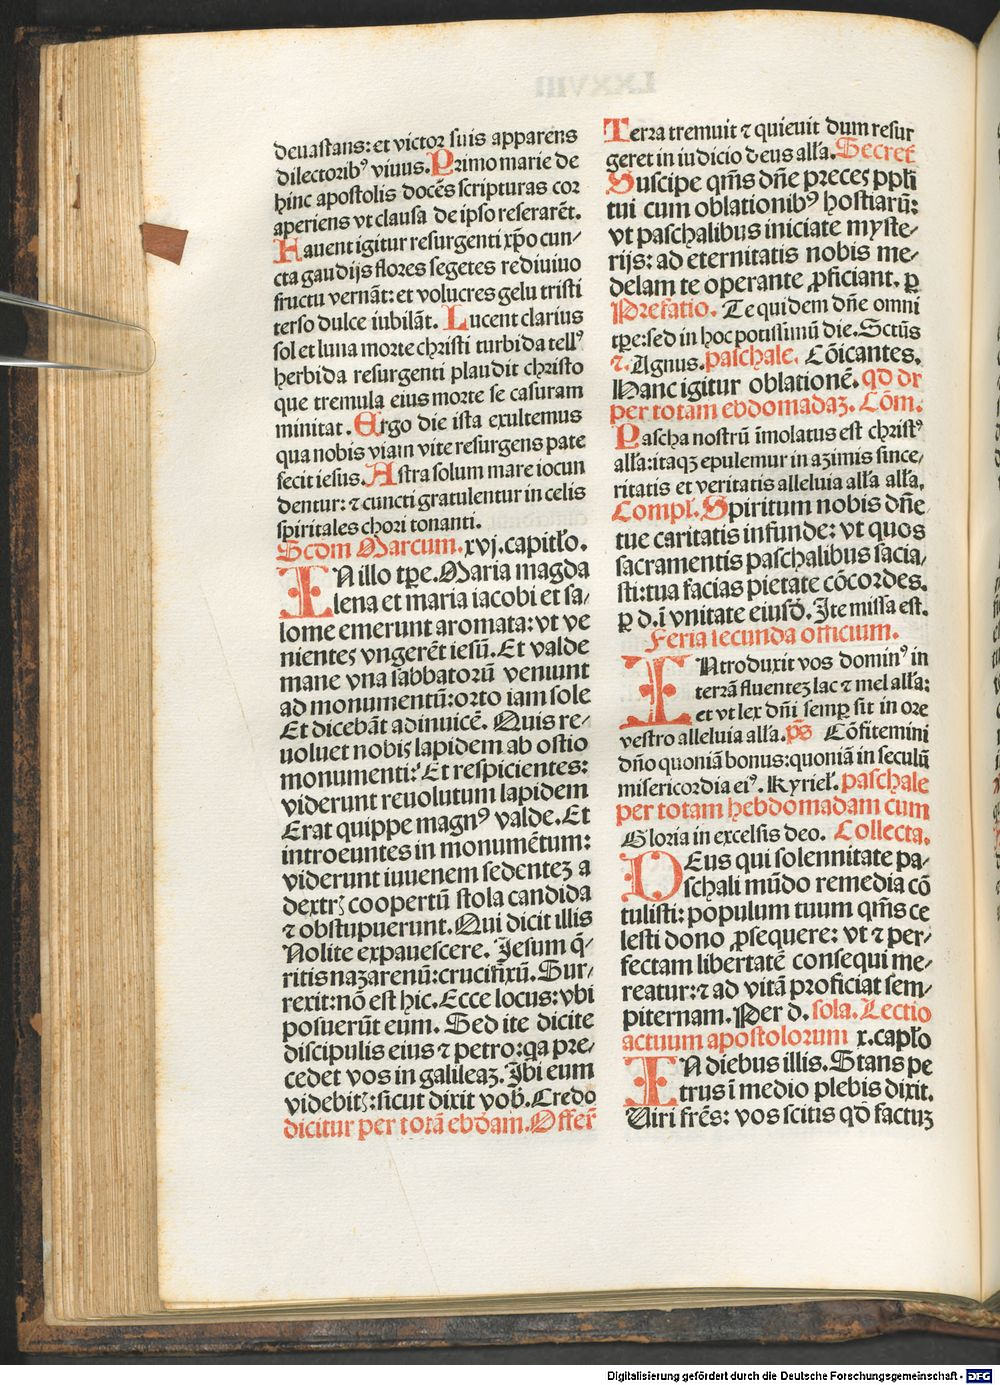 deuastans: et victor suis apparens
dilectorib⁹ viuus. Primo marie de
hinc apostolis docēs scripturas cor
aperiens vt clausa de ipso reserarēt.
Fauent igitur resurgenti xp̄o cun/
cta gaudijs flores segetes rediuiuo
fructu vernāt: et volucres gelu tristi
terso dulce iubilāt. Lucent clarius
sol et luna morte christi turbida tell⁹
herbida resurgenti plaudit christo
que tremula eius morte se casuram
minitat. Ergo die ista exultemus
qua nobis viam vite resurgens pate
fecit iesus. Astra solum mare iocun
dentur: ⁊ cuncti gratulentur in celis
spiritales chori tonanti.
Scdm Marcum. xvj. capitl̓o.
IN illo tp̄e. Maria magda
lena et maria iacobi et sa/
lome emerunt aromata: vt ve
nientes vngerēt iesū. Et valde
mane vna sabbatorū veniunt
ad monumentū: orto iam sole
Et dicebāt adinuicē. Quis re/
uoluet nobis lapidem ab ostio
monumenti: Et respicientes:
viderunt reuolutum lapidem
Erat quippe magn⁹ valde. Et
introeuntes in monumētum:
viderunt iuuenem sedentez a
dextrꝭ coopertū stola candida
⁊ obstupuerunt. Qui dicit illis
Nolite expauescere. Jesum q̄/
ritis nazarenū: crucifixū. Sur/
rexit: nō est hic. Ecce locus: vbi
posuerūt eum. Sed ite dicite
discipulis eius ⁊ petro: qa pre/
cedet vos in galileaz. Jbi eum
videbitꝭ: sicut dixit vob̓. Credo
dicitur per totā ebdām. Offer̄
Terra tremuit ⁊ quieuit dum resur
geret in iudicio deus alľa. Secret̄
Suscipe qm̄s dn̄e preces ppl̓i
tui cum oblationib⁹ hostiarū:
vt paschalibus iniciate myste/
rijs: ad eternitatis nobis me/
delam te operante ꝓficiant. ꝑ
Prefatio. Te quidem dn̄e omni
tp̄e: sed in hoc potissimū die. Sctūs
⁊. Agnus. paschale. Cōicantes.
Hanc igitur oblationē. qd dr
per totam ebdomadaz. Cōm.
Pascha nostrū īmolatus est christ⁹
alľa: itaqz epulemur in azimis since/
ritatis et veritatis alleluia alľa alľa.
Compl̓. Spiritum nobis dn̄e
tue caritatis infunde: vt quos
sacramentis paschalibus sacia/
sti: tua facias pietate cōcordes.
ꝑ d. ī vnitate eiusd̓. Ite missa est.
Feria secunda officium.
INtroduxit vos domin⁹ in
terrā fluentez lac ⁊ mel alľa:
et vt lex dn̄i semꝑ sit in ore
vestro alleluia alľa. ps̄ Cōfitemini
dn̄o quoniā bonus: quoniā in seculū
misericordia ei⁹. Kyriel̓. paschale
per totam hebdomadam cum
Gloria in excelsis deo. Collecta.
DEus qui solennitate pa/
schali mūdo remedia cō
tulisti: populum tuum qm̄s ce
lesti dono ꝓsequere: vt ⁊ per/
fectam libertatē consequi me/
reatur: ⁊ ad vitā proficiat sem/
piternam. Per d. sola. Lectio
actuum apostolorum x. capľo
IN diebus illis. Stans pe
trus ī medio plebis dixit.
Viri frēs: vos scitis qd̓ factuz
Digitalisierung gefördert durch die Deutsche Forschungsgemeinschaft - DFG